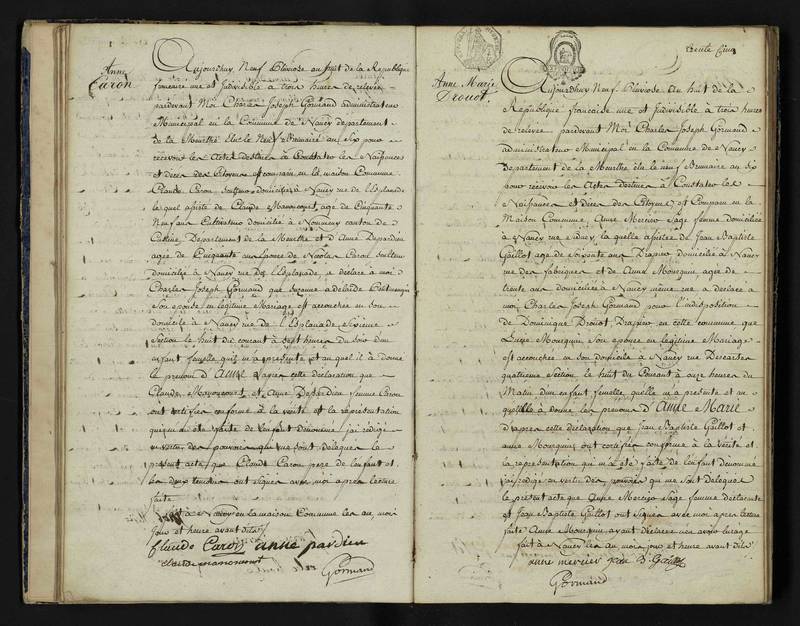 Anne
Caron
Aujourdhuy Neuf Pluviose an huit de la République
francaise une et Indivisible à trois heures de relevée
pardevant Moi Charles Joseph Gormand administrateur
Municipal en la Commune de Nancy departement
de la Meurthe élu le Neuf Brumaire an Six pour
recevoir les Actes destinés à Constater les Naissances
et décès des Citoyens est comparu en la maison Commune
Claude Caron domicilié à Nancy rue de l'Esplanade
lequel assisté de Claude age de Cinquante
Neuf ans Cultivateur domicilié à Nomeny canton de
Departement de la Meurthe et d'Anne Depardieu
agée de Cinquante ans épouse de Nicolas Caron
domicilié à Nancy rue de l'Esplanade, a déclaré à moi
Charles Joseph Gormand que Suzanne adelaide
Son épouse en légitime Mariage est accouchée en son
domicile à Nancy rue de l'Esplanade Sixieme
Section le huit du courant à sept heures du soir d'un
enfant femelle qu'il m'a présenté et auquel il à donné
le prenom d'Anne. D'apres cette déclaration que
Claude et Anne Depardieu femme Caron
ont certifiés conforme à la vérité et la représentation
qui m'a été faite de l'enfant denommé j'ai rédigé
en vertu des pouvoirs qui me sont délégués le
présent acte que Claude Caron pere de l'enfant et
les deux temoins ont signés avec moi apres lecture
faite.
fait à Nancy en la maison Commune les an, mois
Jour et heure avant dits
Claude Caron anne pardieu
Gormand
trente Cinq
Anne Marie
Drouot
Aujourdhuy Neuf Pluviose an huit de la
République francaise une et Indivisible à trois heures
de relevée pardevant Moi Charles Joseph Gormand
administrateur Municipal en la Commune de Nancy
Departement de la Meurthe élu le neuf Brumaire an Six
pour récévoir les Actes destinés à Constater les
Naissances et décès des Citoyens est Comparu en la
Maison Commune Anne Mercier Sage femme domiciliée
à Nancy rue la quelle assistée de Jean Baptiste
Gaillot age de Soixante ans Drapier domicilié à Nancy
rue des fabriques et de Anne Mourquin agée de
trente ans domiciliée à Nancy même rue a déclaré à
moi Charles Joseph Gormand pour l'indisposition
de Dominique Drouot Drapier en cette commune que
Mourquin Son épouse en légitime Mariage
est accouchée en son domicile à Nancy rue Descartes
quatrieme Section le huit du Courant à onze heures du
Matin d'un enfant femelle quelle m'a présenté et au
quel elle à donné les prenoms d'Anne Marie
D'apres cette déclaration que Jean Baptiste Gaillot et
anne Mourquin ont certifiés conforme à la vérité et
la représentation qui m'a été faite de l'enfant denommé
j'ai rédigé en vertu des pouvoirs qui me sont Délégués
le présent acte que Anne Mercier Sage femme déclarante
et Jean Baptiste Gaillot ont signés avec moi apres lecture
faite Anne Mourquin ayant déclaré ne savoir l'usage
fait à Nancy les an mois jour et heure avant dits
anne mercier Jean B Gaillot
Gormand